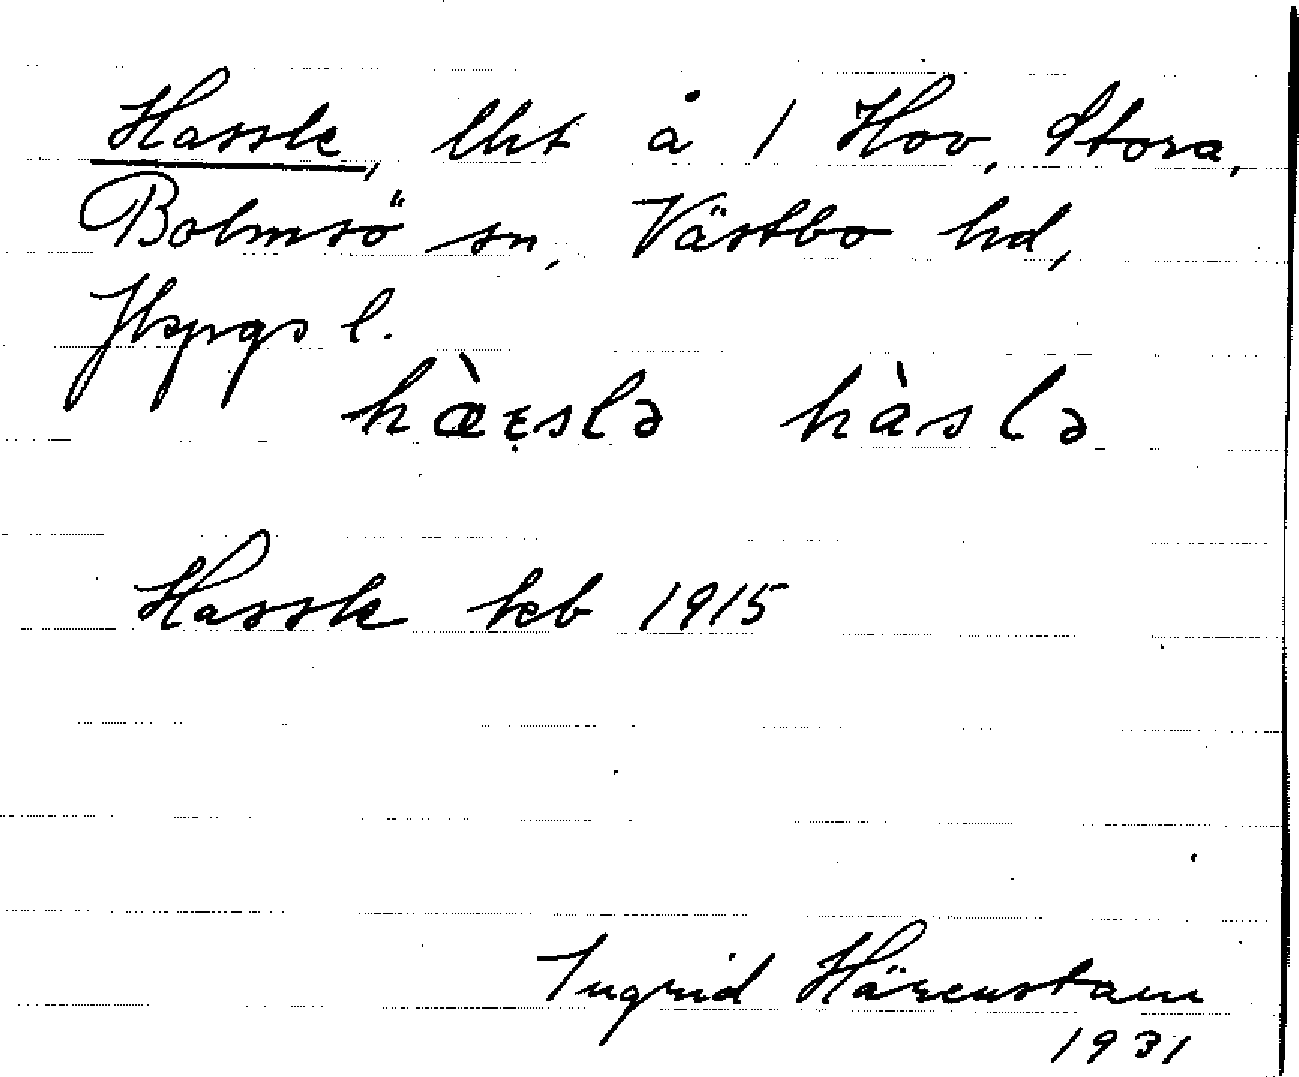 Hassle, lht å 1 Hov, Stora,
Bolmsö sn, Västbo hd,
Jkpgs l.
hàslə
Hassle keb 1915
Ingrid Härenstam
1931